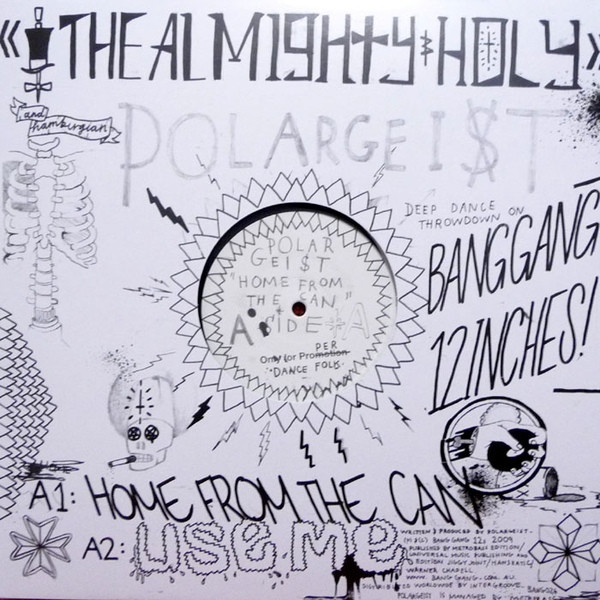 « THE ALMIGHTY & HOLY »
and
hamburgian
POLARGEI$T
DEEP DANCE
THROWDOWN ON
BANG GANG
12 INCHES!
POLAR
GEI$T
"HOME FROM
THE CAN"
A SIDE A
PER
Only for Promotion
"DANCE FOLK"
A1: HOME FROM THE CAN
A2: USE Me
WRITTEN & PRODUCED BY POLARGEIST.
(P)&(C) BANG GANG 12", 2009
PUBLISHED BY METROBASS EDITION/
UNIVERSAL MUSIC PUBLISHING AND
EDITION JIGGY JOINT/
WARNER CHAPELL
WWW. BANG GANG. COM. AU.
DISTRIBUTED WORLDWIDE BY INTERGROOVE.
BANG026
POLARGEIST IS MANAGED BY